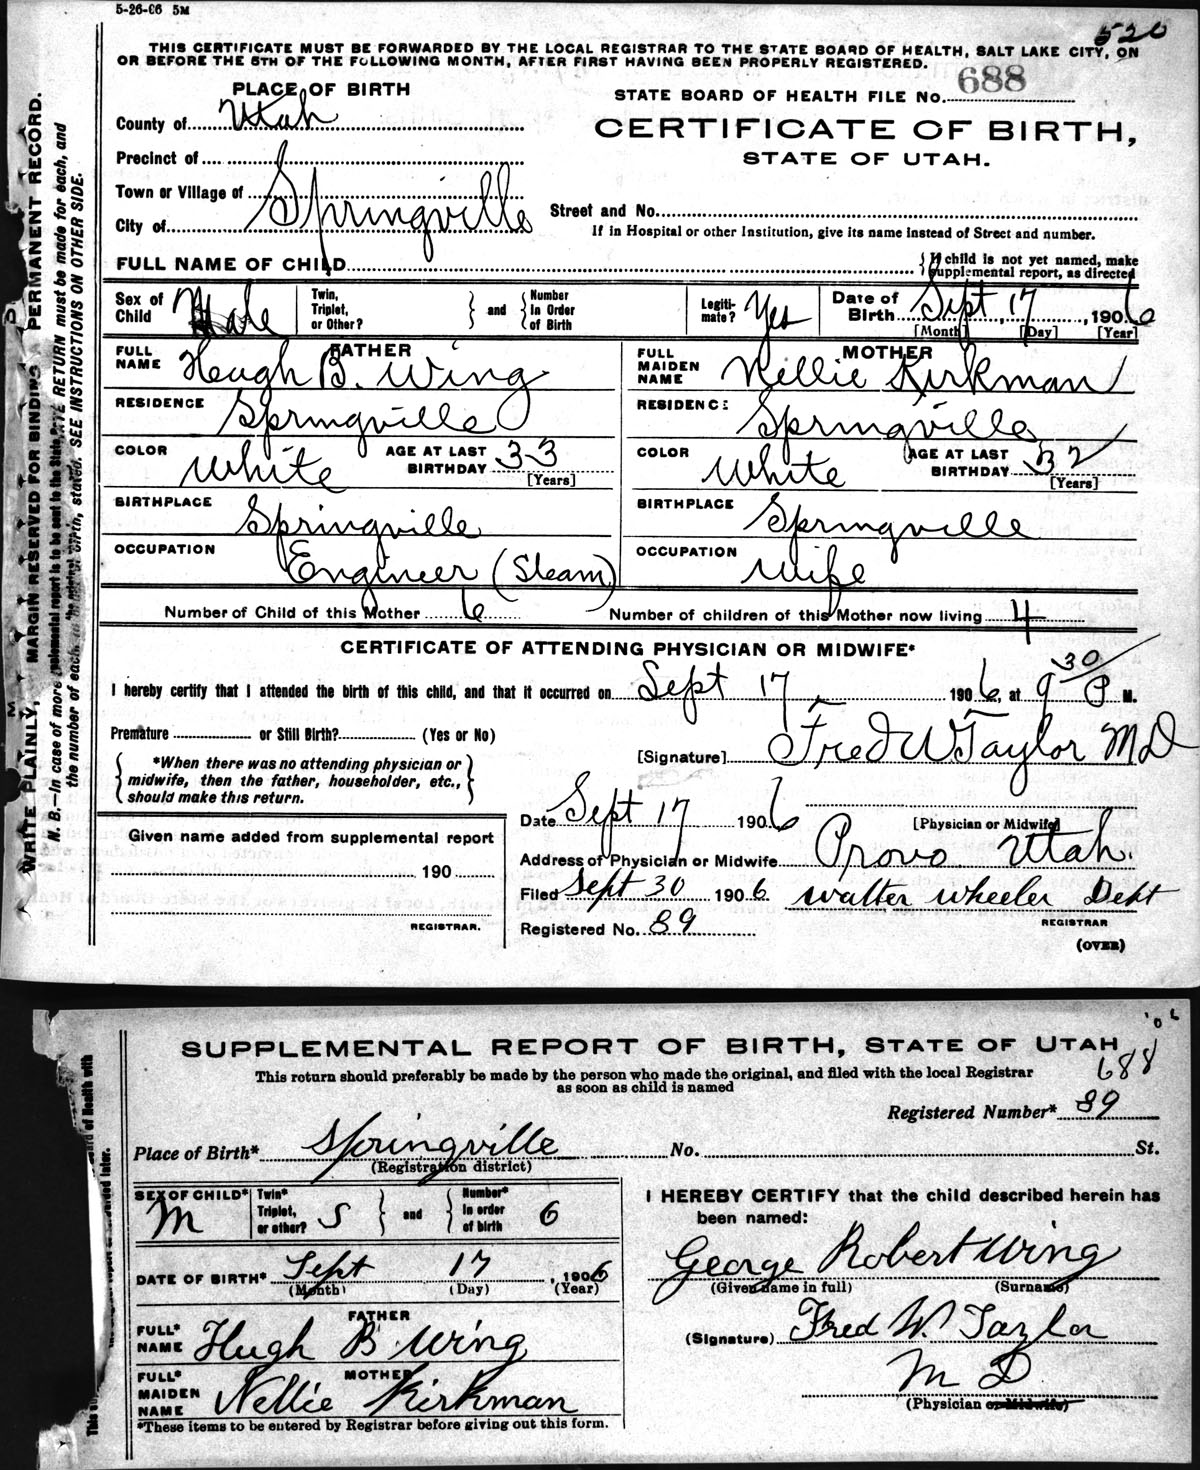 5-26-06 5M
520
THIS CERTIFICATE MUST BE FORWARDED BY THE LOCAL REGISTRAR TO THE STATE BOARD OF HEALTH, SALT LAKE CITY, ON
OR BEFORE THE 5TH OF THE FOLLOWING MONTH, AFTER FIRST HAVING BEEN PROPERLY REGISTERED.
PLACE OF BIRTH
STATE BOARD OF HEALTH FILE No. 688
County of Utah
CERTIFICATE OF BIRTH,
STATE OF UTAH.
Precinct of
Town or Village of
City of Springville
Street and No.
If in Hospital or other Institution, give its name instead of Street and number.
FULL NAME OF CHILD
{If child is not yet named, make
supplemental report, as directed
Sex of Child Male
Twin, Triplet, or Other? } and { Number In Order of Birth
Legiti-mate? Yes
Date of Birth Sept, 17, 1906
[Month] [Day] [Year]
FATHER
FULL NAME Heugh B. Wing
RESIDENCE Springville
COLOR White
AGE AT LAST BIRTHDAY 33
[Years]
BIRTHPLACE Springville
OCCUPATION Engineer (Steam)
MOTHER
FULL MAIDEN NAME Nellie Kirkman
RESIDENCE Springville
COLOR White
AGE AT LAST BIRTHDAY 32
[Years]
BIRTHPLACE Springville
OCCUPATION Wife
Number of Child of this Mother 6
Number of children of this Mother now living 4
CERTIFICATE OF ATTENDING PHYSICIAN OR MIDWIFE*
I hereby certify that I attended the birth of this child, and that it occurred on Sept 17, 1906, at 9 30/P M.
Premature or Still Birth? (Yes or No)
[Signature] Fred W Taylor M D
{ *When there was no attending physician or
midwife, then the father, householder, etc.,
should make this return. }
[Physician or Midwife]
Date Sept 17 1906
Address of Physician or Midwife Provo Utah.
Filed Sept 30 1906 Walter Wheeler Dept
REGISTRAR
Registered No. 89
(OVER)
Given name added from supplemental report
190
REGISTRAR.
WRITE PLAINLY, MARGIN RESERVED FOR BINDING PERMANENT RECORD.
N. B.—In case of more RETURN must be made for each, and
the number of each birth, stated. SEE INSTRUCTIONS ON OTHER SIDE.
'06
SUPPLEMENTAL REPORT OF BIRTH, STATE OF UTAH
688
This return should preferably be made by the person who made the original, and filed with the local Registrar
as soon as child is named
Registered Number* 89
Place of Birth* Springville No. St.
(Registration district)
SEX OF CHILD* M
Twin* Triplet, or other? S } and { Number* In order of birth 6
DATE OF BIRTH* Sept 17, 1906
(Month) (Day) (Year)
FATHER
FULL* NAME Hugh B Wing
MOTHER
FULL* MAIDEN NAME Nellie Kirkman
*These items to be entered by Registrar before giving out this form.
I HEREBY CERTIFY that the child described herein has
been named:
George Robert Wing
(Given name in full) (Surname)
(Signature) Fred W Taylor
M D
(Physician or Midwife)